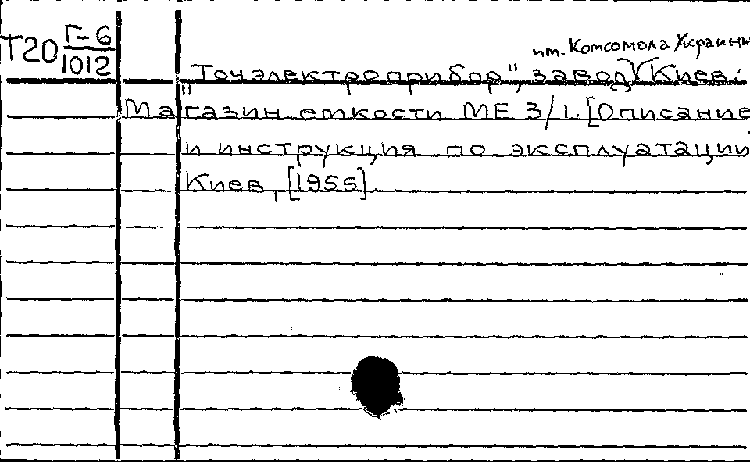 Т20 Г-6
1012
им. Комсомола Украины
"Точэлектроприбор", завод (Киев.
Магазин емкости МЕ 3/1. [Описание
и инструкция по эксплуатации
Киев, [1955]